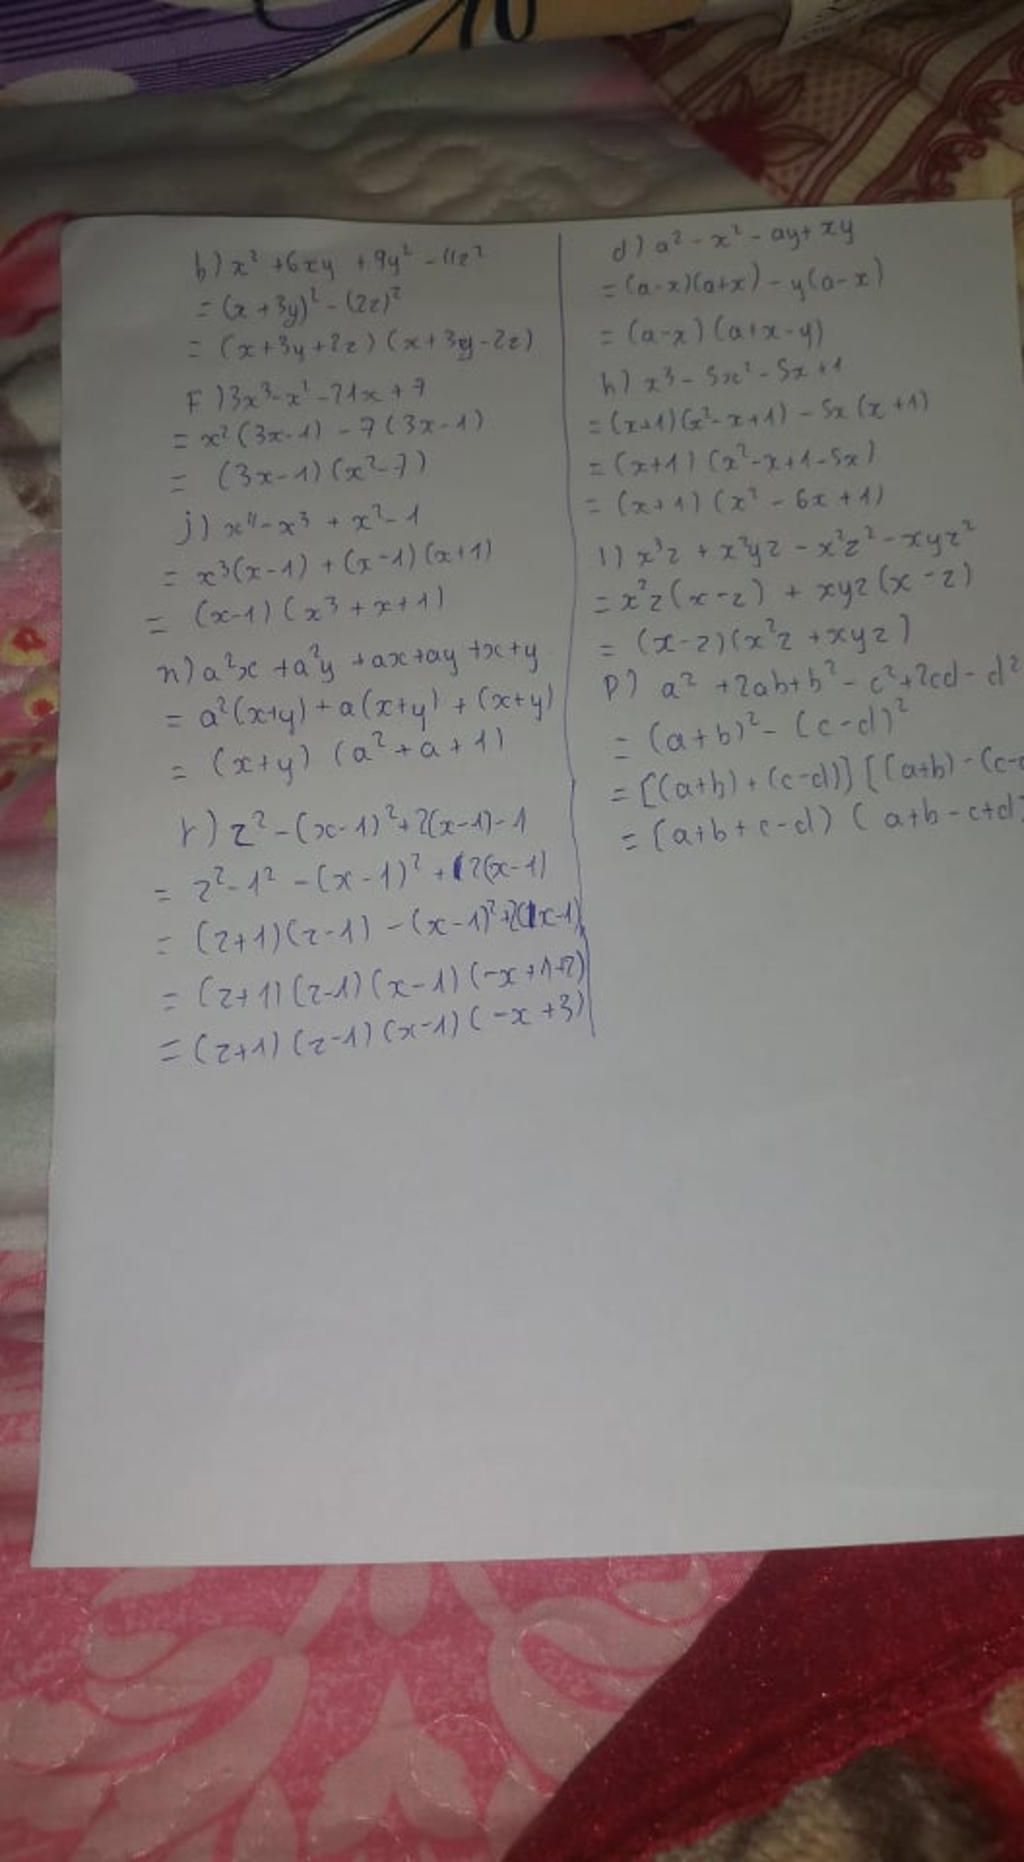 b) x² + 6xy + 9y² - 4z²
= (x + 3y)² - (2z)²
= (x+3y+2z) (x+3y-2z)
F) 3x³ - x² - 21x + 7
= x² (3x-1) - 7 (3x-1)
= (3x-1) (x²-7)
j) x⁴ - x³ + x² - 1
= x³(x-1) + (x-1) (x+1)
= (x-1) (x³ + x + 1)
n) a²x + a²y + ax + ay + x + y
= a²(x+y) + a(x+y) + (x+y)
= (x+y) (a² + a + 1)
r) z² - (x-1)² + 2(x-1) - 1
= z² - 1² - (x-1)² + 2(x-1)
= (z+1) (z-1) - (x-1)² + 2(x-1)
= (z+1) (z-1) (x-1) (-x+1+2)
= (z+1) (z-1) (x-1) (-x+3)
d) a² - x² - ay + xy
= (a-x)(a+x) - y(a-x)
= (a-x) (a+x-y)
h) x³ - 5x² - 5x + 1
= (x+1) (x² - x + 1) - 5x (x+1)
= (x+1) (x² - x + 1 - 5x)
= (x+1) (x² - 6x + 1)
l) x³z + x²yz - x²z² - xyz²
= x²z (x-z) + xyz (x-z)
= (x-z) (x²z + xyz)
p) a² + 2ab + b² - c² + 2cd - d²
= (a+b)² - (c-d)²
= [(a+b) + (c-d)] [(a+b) - (c-
= (a+b+c-d) (a+b-c+d)